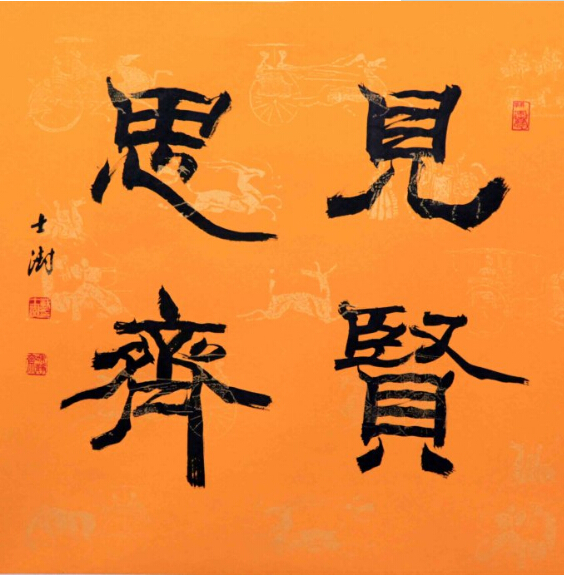 見賢
思齊
士澍